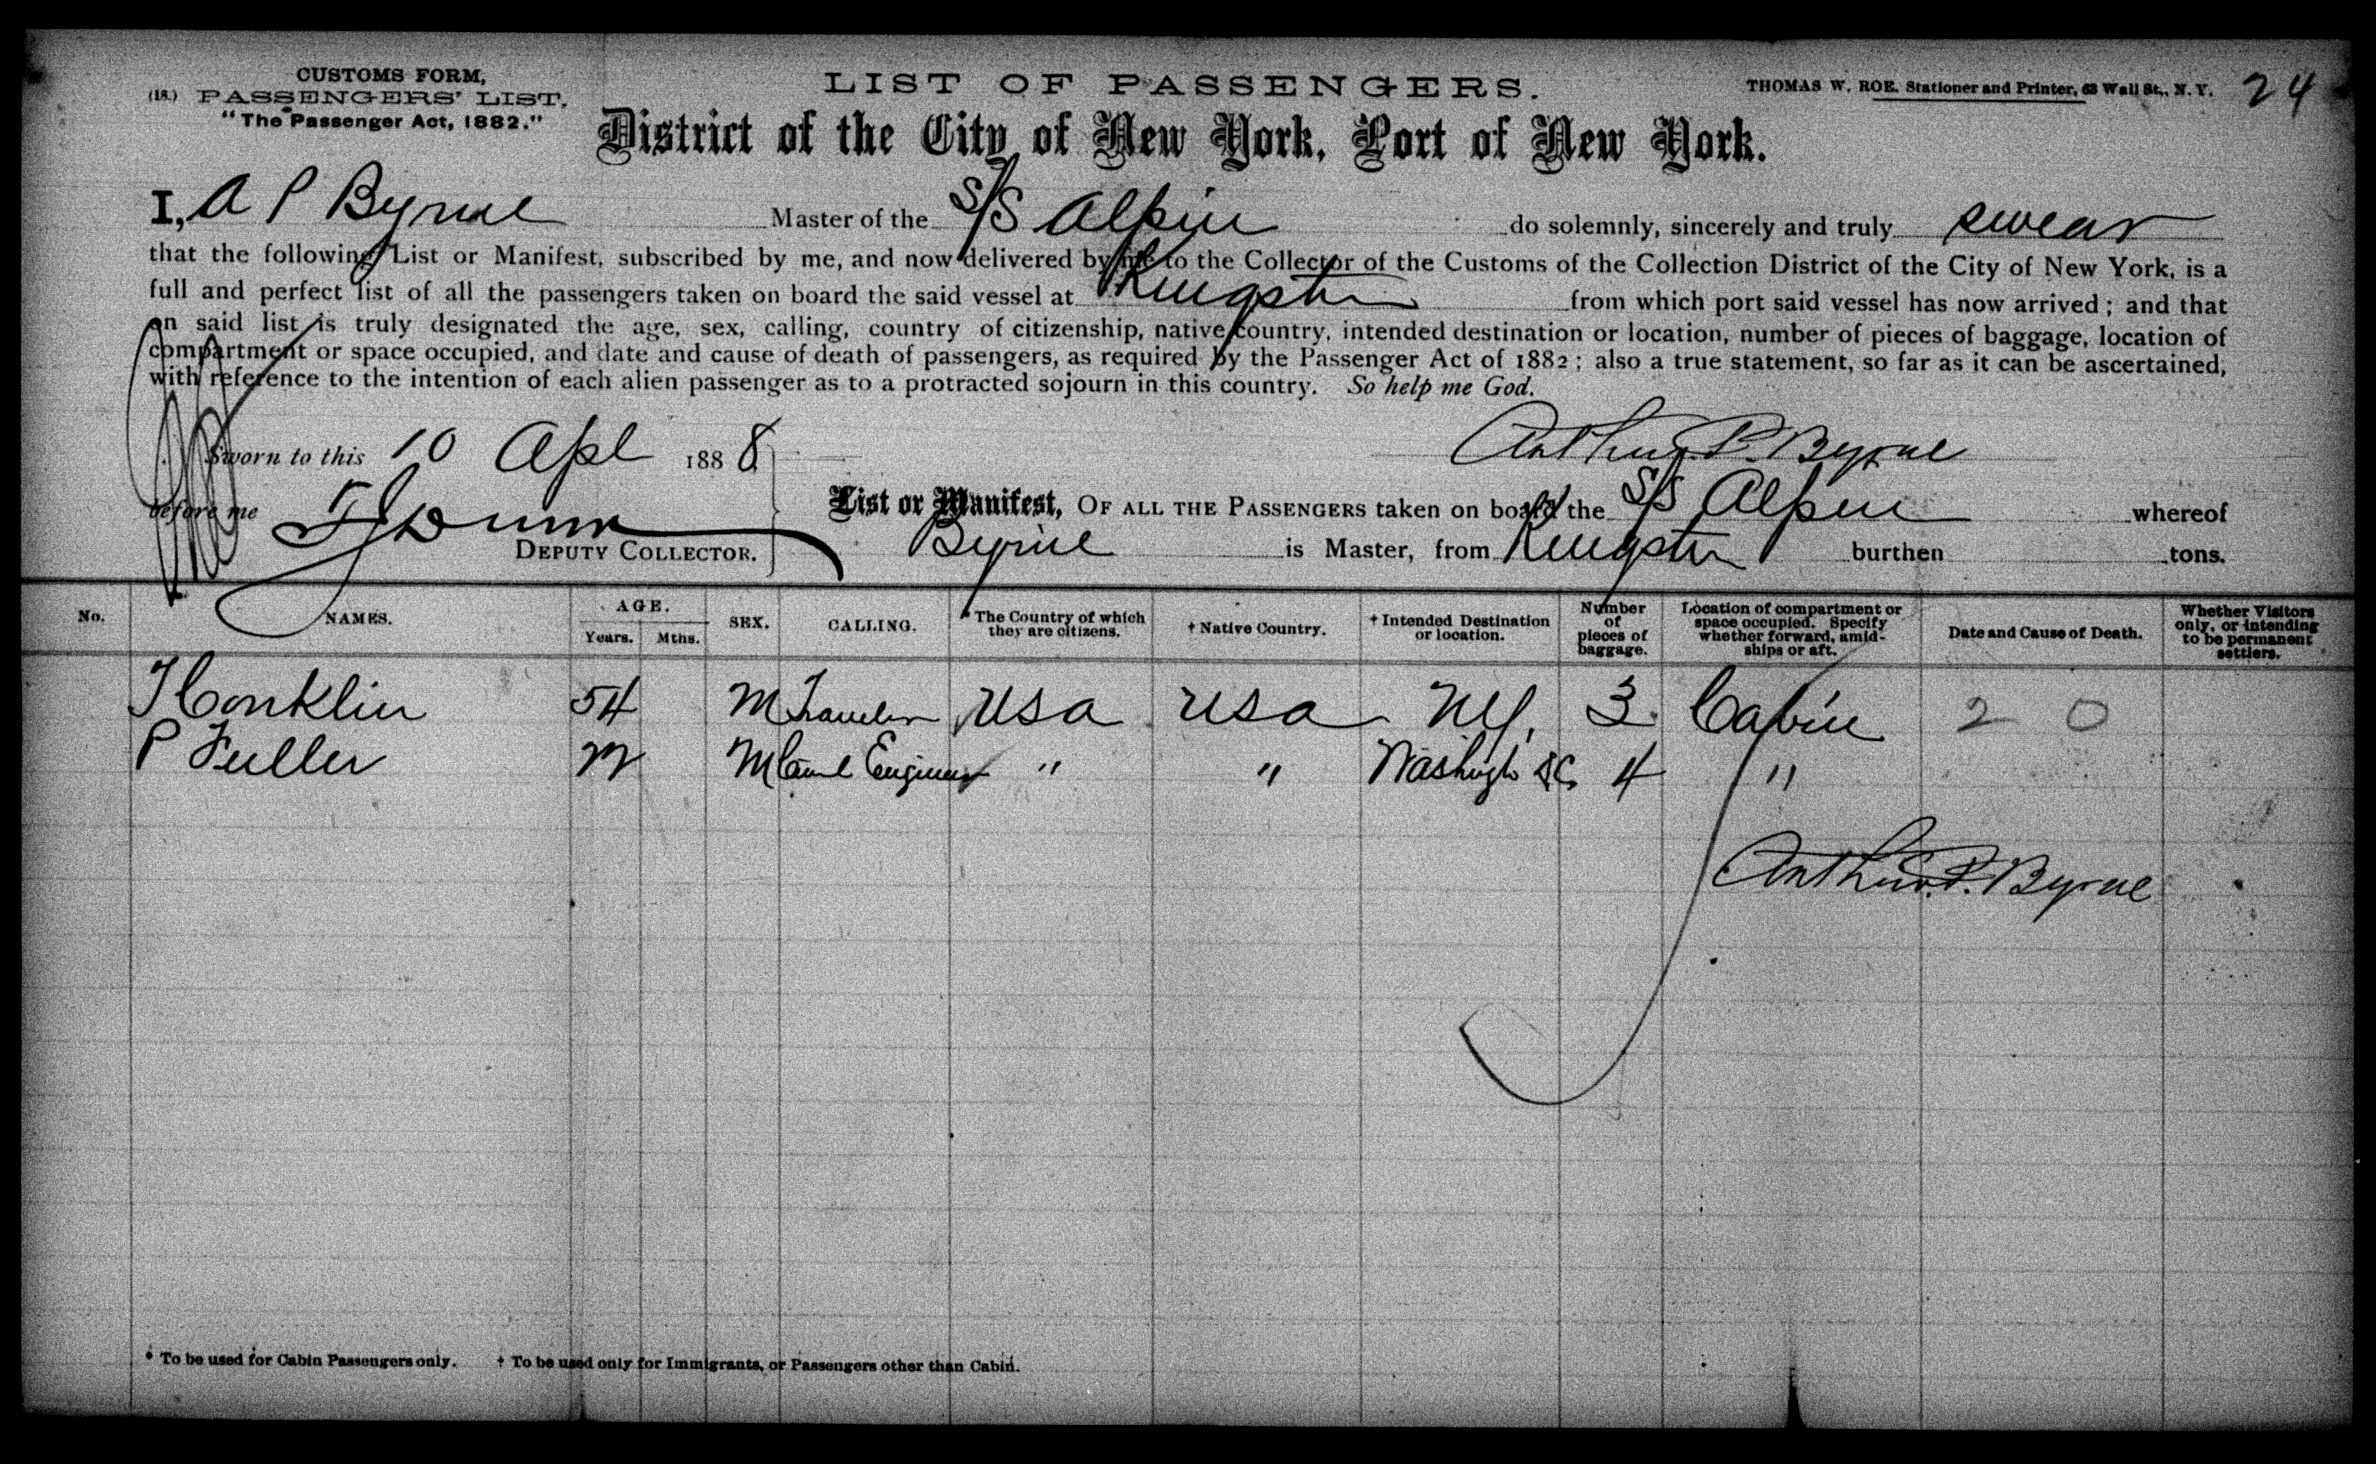 CUSTOMS FORM,
(18.) PASSENGERS' LIST.
"The Passenger Act, 1882."
LIST OF PASSENGERS.
THOMAS W. ROE, Stationer and Printer, 63 Wall St., N. Y.
24
District of the City of New York, Port of New York.
I, A P Byrne Master of the S/S Alpin do solemnly, sincerely and truly swear
that the following List or Manifest, subscribed by me, and now delivered by me to the Collector of the Customs of the Collection District of the City of New York, is a
full and perfect list of all the passengers taken on board the said vessel at Kingston from which port said vessel has now arrived; and that
on said list is truly designated the age, sex, calling, country of citizenship, native country, intended destination or location, number of pieces of baggage, location of
compartment or space occupied, and date and cause of death of passengers, as required by the Passenger Act of 1882; also a true statement, so far as it can be ascertained,
with reference to the intention of each alien passenger as to a protracted sojourn in this country. So help me God.
Sworn to this 10 Apl 1888
Arthur P. Byrne
before me Dunn
DEPUTY COLLECTOR.
List or Manifest, OF ALL THE PASSENGERS taken on board the S/S Alpin whereof
Byrne is Master, from Kingston burthen tons.
No. NAMES. AGE. Years. Mths. SEX. CALLING. * The Country of which they are citizens. † Native Country. † Intended Destination or location. Number of pieces of baggage. Location of compartment or space occupied. Specify whether forward, amidships or aft. Date and Cause of Death. Whether Visitors only, or intending to be permanent settlers.
Conklin 54 M Traveler USA USA NY. 3 Cabin 2 0
P Fuller M Engineer " " 4 "
Arthur P. Byrne
* To be used for Cabin Passengers only. † To be used only for Immigrants, or Passengers other than Cabin.